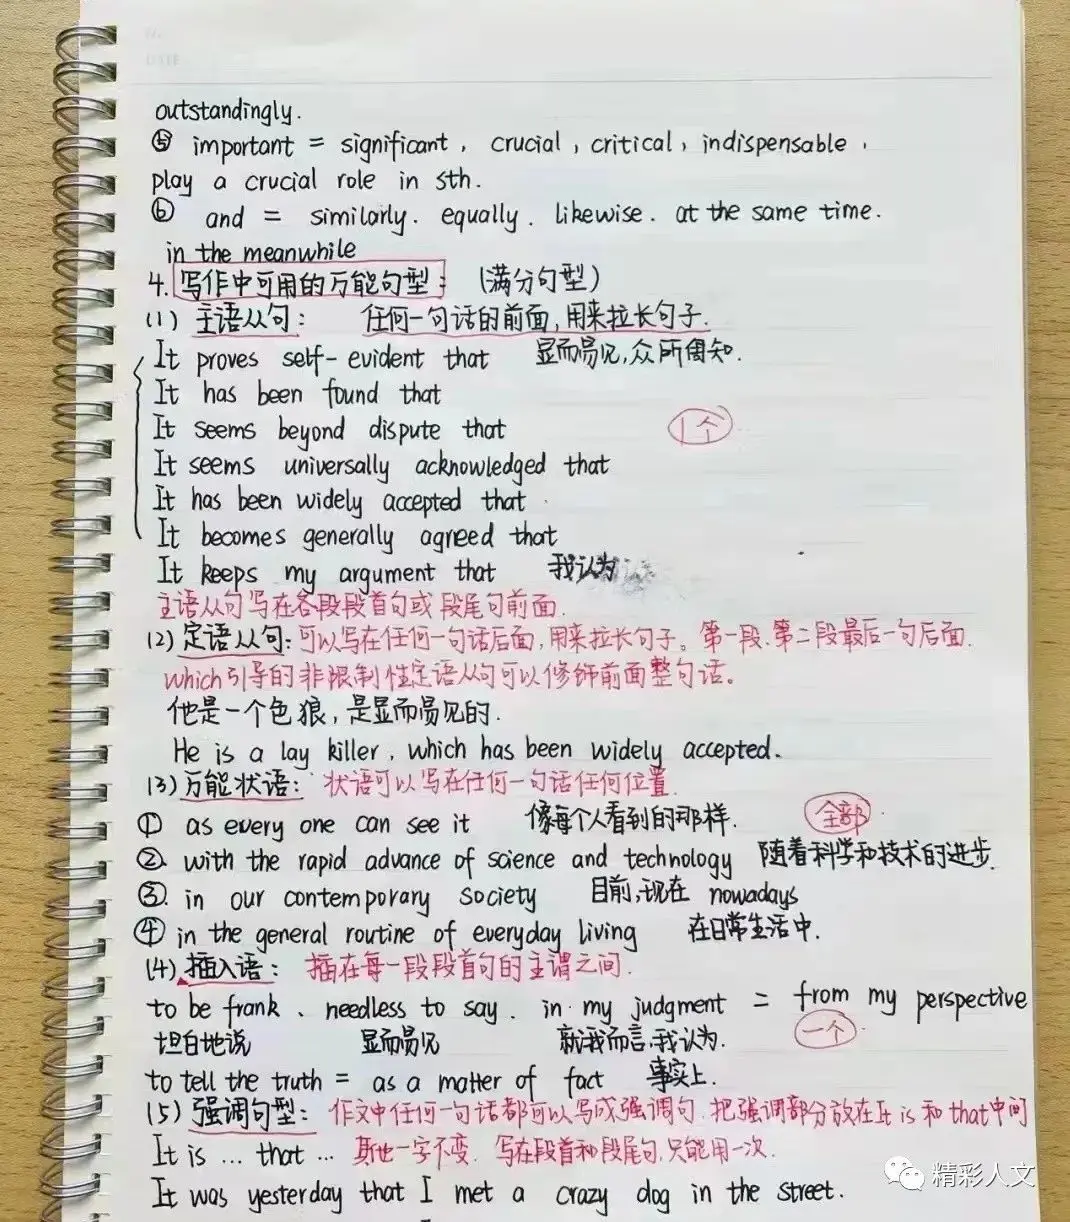 outstandingly.
⑤ important = significant, crucial, critical, indispensable,
play a crucial role in sth.
⑥ and = similarly. equally. likewise. at the same time.
in the meanwhile
4. 写作中可用的万能句型: (满分句型)
(1) 主语从句: 任何一句话的前面,用来拉长句子.
It proves self-evident that 显而易见,众所周知.
It has been found that
It seems beyond dispute that 1个
It seems universally acknowledged that
It has been widely accepted that
It becomes generally agreed that
It keeps my argument that 我认为
主语从句写在各段段首句或段尾句前面.
(2) 定语从句: 可以写在任何一句话后面,用来拉长句子。第一段、第二段最后一句后面.
which引导的非限制性定语从句可以修饰前面整句话。
他是一个色狼,是显而易见的.
He is a lay killer, which has been widely accepted.
(3) 万能状语: 状语可以写在任何一句话任何位置.
① as every one can see it 像每个人看到的那样. 全部
② with the rapid advance of science and technology 随着科学和技术的进步.
③ in our contemporary society 目前,现在 nowadays
④ in the general routine of everyday living 在日常生活中.
(4) 插入语: 插在每一段段首句的主谓之间.
to be frank、needless to say. in my judgment = from my perspective
坦白地说 显而易见 就我而言,我认为. 一个
to tell the truth = as a matter of fact 事实上.
(5) 强调句型: 作文中任何一句话都可以写成强调句.把强调部分放在It is 和 that中间
It is ... that ... 其他一字不变. 写在段首和段尾句,只能用一次.
It was yesterday that I met a crazy dog in the street.
精彩人文